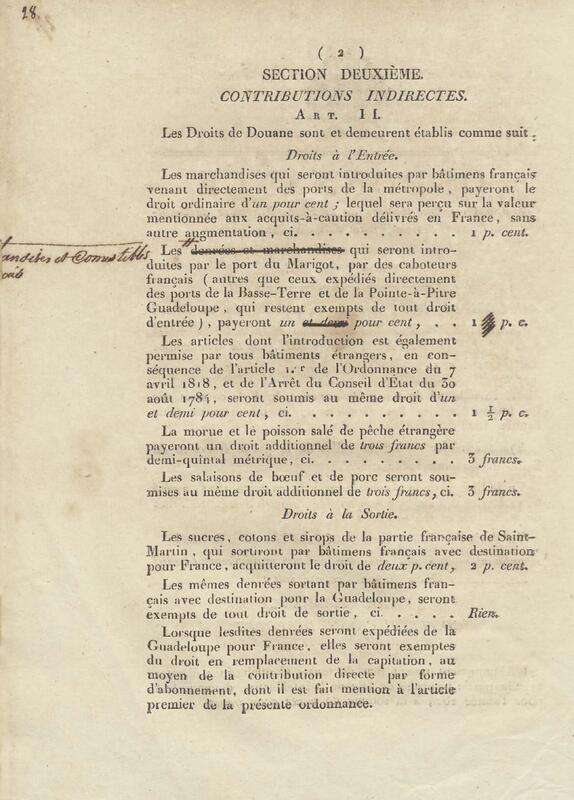 28.
( 2 )
SECTION DEUXIÈME.
CONTRIBUTIONS INDIRECTES.
ART. II.
Les Droits de Douane sont et demeurent établis comme suit :
Droits à l'Entrée.
Les marchandises qui seront introduites par bâtimens français
venant directement des ports de la métropole, payeront le
droit ordinaire d'un pour cent ; lequel sera perçu sur la valeur
mentionnée aux acquits-à-caution délivrés en France, sans
autre augmentation, ci. . . . . . . . . . 1 p. cent.
andises et Comestibles
Les denrées et marchandises qui seront intro-
duites par le port du Marigot, par des caboteurs
français ( autres que ceux expédiés directement
des ports de la Basse-Terre et de la Pointe-à-Pitre
Guadeloupe, qui restent exempts de tout droit
d'entrée ), payeront un et demi pour cent, . . 1 p. c.
Les articles dont l'introduction est également
permise par tous bâtiments étrangers, en con-
séquence de l'article 1.er de l'Ordonnance du 7
avril 1818, et de l'Arrêt du Conseil d'État du 30
août 1784, seront soumis au même droit d'un
et demi pour cent, ci. . . . . . . . . 1 1/2 p. c.
La morue et le poisson salé de pêche étrangère
payeront un droit additionnel de trois francs par
demi-quintal métrique, ci. . . . . . . . 3 francs.
Les salaisons de bœuf et de porc seront sou-
mises au même droit additionnel de trois francs, ci. 3 francs.
Droits à la Sortie.
Les sucres, cotons et sirops de la partie française de Saint-
Martin, qui sortiront par bâtimens français avec destination
pour France, acquitteront le droit de deux p. cent, 2 p. cent.
Les mêmes denrées sortant par bâtimens fran-
çais avec destination pour la Guadeloupe, seront
exempts de tout droit de sortie, ci. . . . . Rien.
Lorsque lesdites denrées seront expédiées de la
Guadeloupe pour France, elles seront exemptes
du droit en remplacement de la capitation, au
moyen de la contribution directe par forme
d'abonnement, dont il est fait mention à l'article
premier de la présente ordonnance.